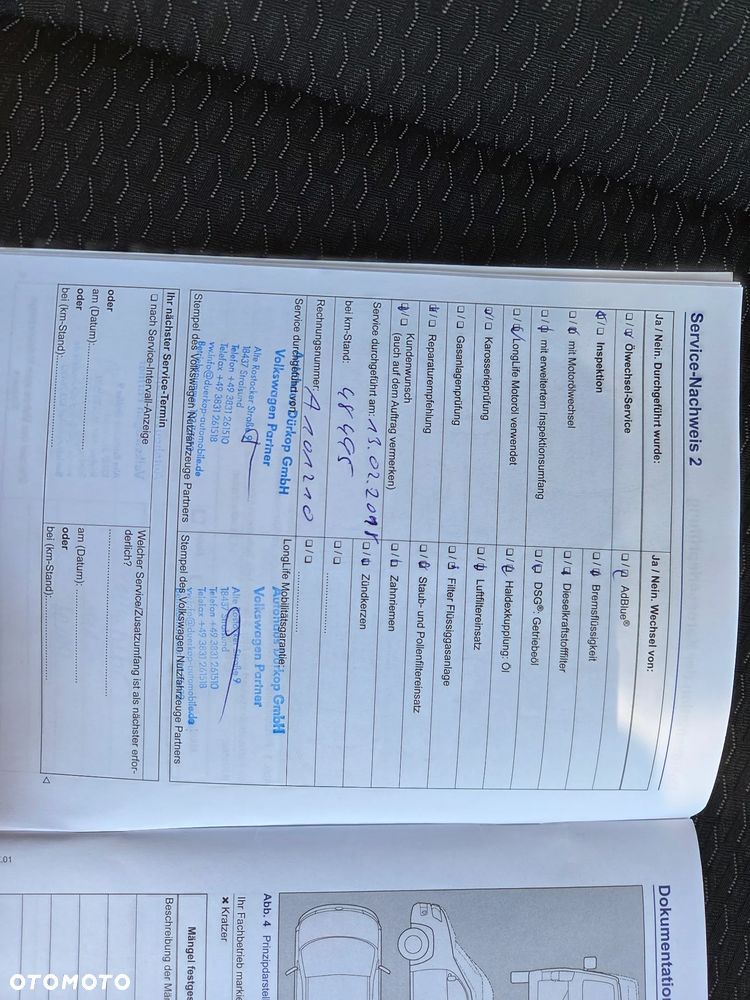 Service-Nachweis 2
Ja / Nein. Durchgeführt wurde:
❑ / ❑ Ölwechsel-Service
❑ / ❑ Inspektion
❑ / ❑ mit Motorölwechsel
❑ / ❑ mit erweitertem Inspektionsumfang
❑ / ❑ LongLife Motoröl verwendet
❑ / ❑ Karosserieprüfung
❑ / ❑ Gasanlagenprüfung
❑ / ❑ Reparaturempfehlung
❑ / ❑ Kundenwunsch
(auch auf dem Auftrag vermerken)
Service durchgeführt am: 13.02.2018
bei km-Stand: 48495
Rechnungsnummer: A101210
Service durchgeführt von:
Autohaus Dürkop GmbH
Volkswagen Partner
Alte Rostocker Straße 9
18437 Stralsund
Telefon +49 3831 261510
Telefax +49 3831 261518
vw.info@duerkop-automobile.de
Stempel des Volkswagen Nutzfahrzeuge Partners
Ja / Nein. Wechsel von:
❑ / ❑ AdBlue®
❑ / ❑ Bremsflüssigkeit
❑ / ❑ Dieselkraftstofffilter
❑ / ❑ DSG®: Getriebeöl
❑ / ❑ Haldexkupplung: Öl
❑ / ❑ Luftfiltereinsatz
❑ / ❑ Filter Flüssiggasanlage
❑ / ❑ Staub- und Pollenfiltereinsatz
❑ / ❑ Zahnriemen
❑ / ❑ Zündkerzen
❑ / ❑
❑ / ❑
LongLife Mobilitätsgarantie:
Autohaus Dürkop GmbH
Volkswagen Partner
Alte Rostocker Straße 9
18437 Stralsund
Telefon +49 3831 261510
Telefax +49 3831 261518
vw.info@duerkop-automobile.de
Stempel des Volkswagen Nutzfahrzeuge Partners
Ihr nächster Service-Termin
❑ nach Service-Intervall-Anzeige
oder
am (Datum):
oder
bei (km-Stand):
Welcher Service/Zusatzumfang ist als nächster erfor-
derlich?
am (Datum):
oder
bei (km-Stand):
Dokumentation
Abb. 4 Prinzipdarstel
Ihr Fachbetrieb markie
✖ Kratzer
Mängel festges
Beschreibung der Mä
.01
OTOMOTO